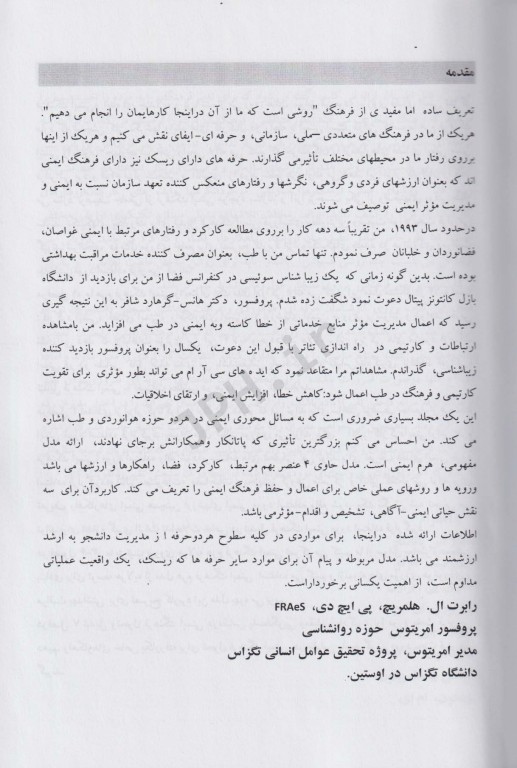 مقدمه
تعریف ساده اما مفید ی از فرهنگ "روشی است که ما از آن دراینجا کارهایمان را انجام می دهیم".
هریک از ما در فرهنگ های متعددی –ملی، سازمانی، و حرفه ای- ایفای نقش می کنیم و هریک از اینها
برروی رفتار ما در محیطهای مختلف تأثیرمی گذارند. حرفه های دارای ریسک نیز دارای فرهنگ ایمنی
اند که بعنوان ارزشهای فردی وگروهی، نگرشها و رفتارهای منعکس کننده تعهد سازمان نسبت به ایمنی و
مدیریت مؤثر ایمنی توصیف می شوند.
درحدود سال ۱۹۹۳، من تقریباً سه دهه کار را برروی مطالعه کارکرد و رفتارهای مرتبط با ایمنی غواصان،
فضانوردان و خلبانان صرف نمودم. تنها تماس من با طب، بعنوان مصرف کننده خدمات مراقبت بهداشتی
بوده است. بدین گونه زمانی که یک زیبا شناس سوئیسی در کنفرانس فضا از من برای بازدید از دانشگاه
بازل کانتونز پیتال دعوت نمود شگفت زده شدم. پروفسور، دکتر هانس-گرهارد شافر به این نتیجه گیری
رسید که اعمال مدیریت مؤثر منابع خدماتی از خطا کاسته وبه ایمنی در طب می افزاید. من بامشاهده
ارتباطات و کارتیمی در راه اندازی تئاتر با قبول این دعوت، یکسال را بعنوان پروفسور بازدید کننده
زیباشناسی، گذراندم. مشاهداتم مرا متقاعد نمود که اید ه های سی آر ام می تواند بطور مؤثری برای تقویت
کارتیمی و فرهنگ در طب اعمال شود:کاهش خطا، افزایش ایمنی، و ارتقای اخلاقیات.
این یک مجلد بسیاری ضروری است که به مسائل محوری ایمنی در هردو حوزه هوانوردی و طب اشاره
می کند. من احساس می کنم بزرگترین تأثیری که پاتانکار وهمکارانش برجای نهادند، ارائه مدل
مفهومی، هرم ایمنی است. مدل حاوی ۴ عنصر بهم مرتبط، کارکرد، فضا، راهکارها و ارزشها می باشد
ورویه ها و روشهای عملی خاص برای اعمال و حفظ فرهنگ ایمنی را تعریف می کند. کاربردآن برای سه
نقش حیاتی ایمنی-آگاهی، تشخیص و اقدام-مؤثرمی باشد.
اطلاعات ارائه شده دراینجا، برای مواردی در کلیه سطوح هردوحرفه ا ز مدیریت دانشجو به ارشد
ارزشمند می باشد. مدل مربوطه و پیام آن برای موارد سایر حرفه ها که ریسک، یک واقعیت عملیاتی
مداوم است، از اهمیت یکسانی برخورداراست.
رابرت ال. هلمریچ، پی ایچ دی، FRAeS
پروفسور امریتوس حوزه روانشناسی
مدیر امریتوس، پروژه تحقیق عوامل انسانی تگزاس
دانشگاه تگزاس در اوستین.
JPH.ir